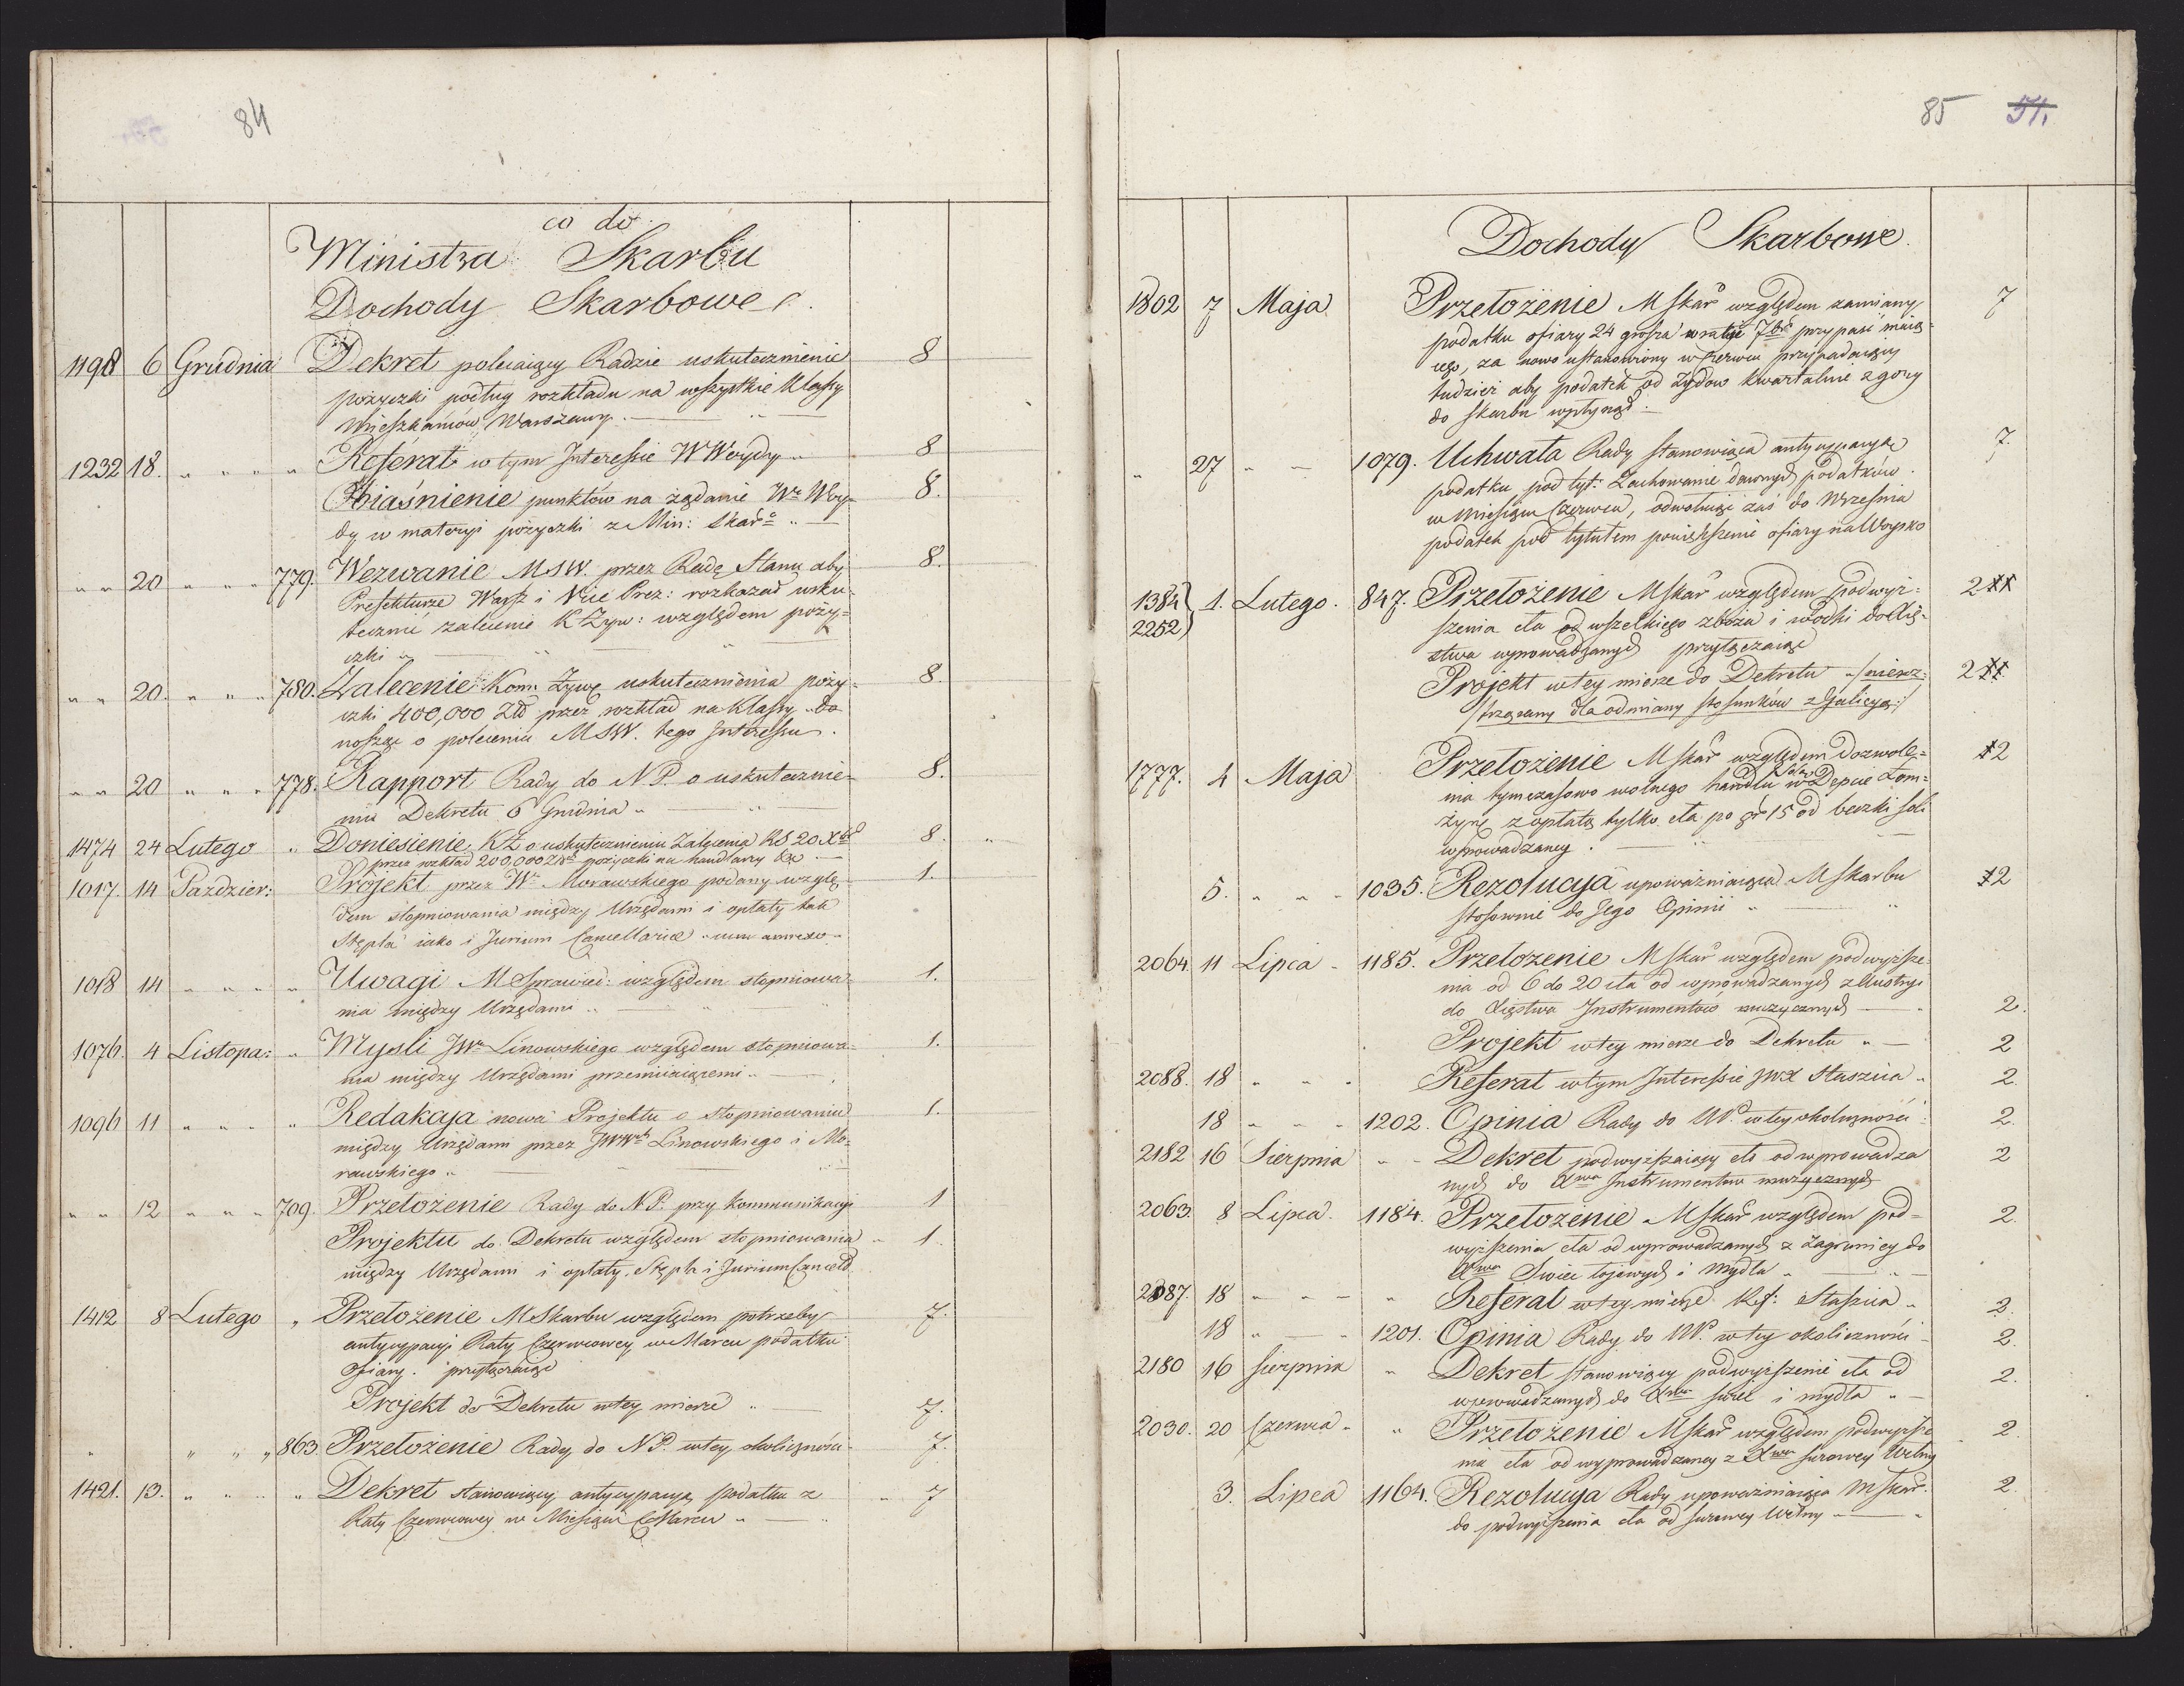 84
co do
Ministra Skarbu
Dochody Skarbowe
1198 6 Grudnia Dekret polecaiący Radzie uskutecznienie 8
pożyczki podług rozkładu na wszystkie Klassy
Mieszkańców Warszawy.
1232 18. " " " " Referat w tym Interessie W Weydy " 8
Obiaśnienie punktów na żądanie Wo Wey- 8.
dy w materyi pożyczki z Min: Skar: "
" " 20 " " " 779. Wezwanie MSW. przez Radę Stanu aby 8.
Prefekturze Warsz i Vice Prez: rozkazał usku-
tecznić zalecenie K Żyw: względem poży=
czki "
" " 20. " " " 780. Zalecenie Kom: Żywę uskutecznienia poży= 8.
czki 400,000 Złł przez rozkład na klassy " do
nosząc o poleceniu MSW. tego Interessu.
" " 20 " " " 778. Rapport Rady do N.P. o uskutecznie- 8.
niu Dekretu 6 Grudnia "
1474 24 Lutego " Doniesienie KŻ o uskutecznieniu Zalecenia RS 20 Xbr 8.
przez rozkład 200,000 Złł pożyczki na handlarzy
1017. 14 Paździer: Projekt przez Wo Morawskiego podany wzglę- 1.
dem stopniowania między Urzędami i opłaty tak
Stępla iako i Jurium Cancellariae " cum annexo "
1018 14 " " " " Uwagi M Sprawied: względem stopniowa- 1.
nia między Urzędami "
1076. 4 Listopa: " Mysli JWo Linowskiego względem stopniowa- 1.
nia między Urzędami przemiiaiącemi "
1096 11 " " " " Redakcya nowa Projektu o stopniowaniu 1.
między Urzędami przez JWWch Linowskiego i Mo-
rawskiego "
" " 12 " " " 709. Przełożenie Rady do N.P. przy kommunikacyi 1
Projektu do Dekretu względem stopniowania " 1
między Urzędami i opłaty Stępla i Jurium Cancell
1412 8 Lutego " Przełożenie M Skarbu względem potrzeby 7.
antycypacyi Raty Czerwcowey w Marcu podatku
Ofiary. przyłączaiąc
Projekt do Dekretu w tey mierze " 7.
" " " " 863. Przełożenie Rady do N.P. w tey okoliczności 7.
1421. 13. " " " " Dekret stanowiący antycypacyą podatku z " 7
Raty Czerwcowey w Miesiącu Marcu "
85 51.
Dochody Skarbowe.
1802 7 Maja Przełożenie M Skar względem zamiany 7
podatku ofiary 24 grosza w racie 7br przypaść maią-
cego, za nowo ustanowiony w Czerwcu przypadaiący
tudzież aby podatek od Żydow kwartalnie z gory
do skarbu wpłynął.
" 27 " " 1079. Uchwała Rady stanowiąca antycypacyą 7.
podatku pod tyt: Zachowanie dawnych podatków.
w Miesiącu Czerwcu, odwołuiąc zaś do Września
podatek pod tytułem powiększenie ofiary na Woysko
1384 2252 } 1. Lutego. 847. Przełożenie M Skar względem podwyż= 2
szenia cła od wszelkiego zboża i wódki do Xię-
stwa wprowadzanych przyłączaiąc
Projekt w tey mierze do Dekretu " / niewz- 2
/ trzącany dla odmiany stosunków z Galicyą:/
1777. 4 Maja Przełożenie M Skar względem dozwole= 2
nia tymczasowo wolnego handlu Solą w Depcie Łom=
żyńs. z opłatą tylko cła po gr 15 od beczki soli
wprowadzaney.
5. " " " 1035. Rezolucya upoważniaiąca M Skarbu 2
stosownie do Jego Opinii "
2064. 11 Lipca - 1185. Przełożenie M Skar względem podwyższe-
nia od 6 do 20 cła od wprowadzanych z Austryi
do Xięstwa Instrumentów muzycznych " 2.
Projekt w tey mierze do Dekretu " 2
2088. 18 " " " Referat w tym Interessie JWX Staszica " 2.
18 " " " 1202. Opinia Rady do NP. w tey okoliczności 2.
2182 16 Sierpnia " " Dekret podwyższaiący cło od wprowadza 2
nych do Xwa Instrumentów muzycznych
2063. 8 Lipca. 1184. Przełożenie M Skar względem pod- 2.
wyższenia cła od wprowadzanych z Zagranicy do
Xwa Swiec łojowych i Mydła "
2087. 18 " " " " Referat w tey mierze Ref: Staszica " 2.
18 " " " 1201. Opinia Rady do NP. w tey okoliczności 2.
2180 16 Sierpnia " Dekret stanowiący podwyższenie cła od 2.
wprowadzanych do Xwa Swiec i mydła "
2030. 20 Czerwca " " Przełożenie M Skar względem podwyższe 2.
nia cła od wyprowadzaney z Xwa surowey Wełny
3. Lipca 1164. Rezolucya Rady upoważniaiąca M Skar. 2.
do podwyższenia cła od surowey Wełny "